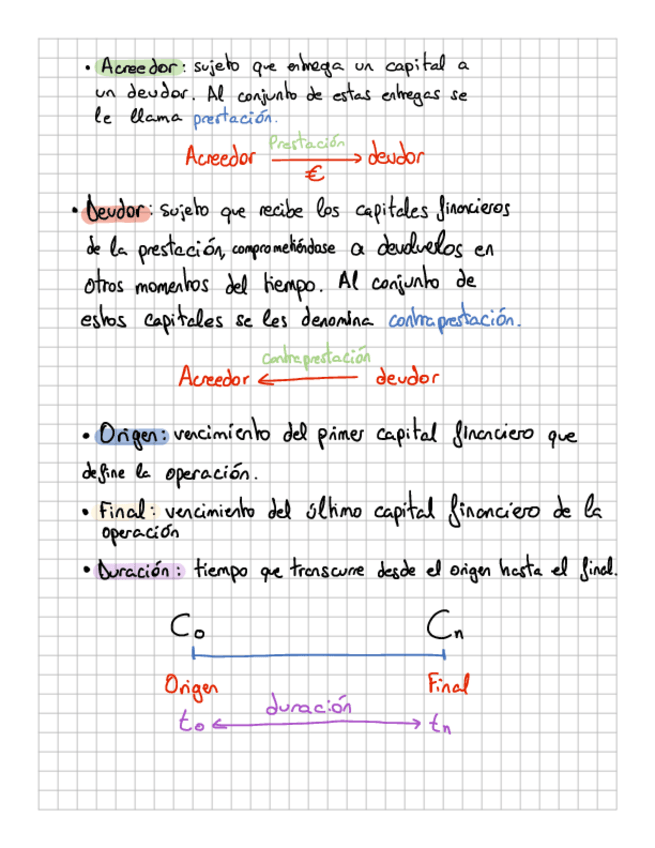 • Acreedor: sujeto que entrega un capital a
un deudor. Al conjunto de estas entregas se
le llama prestación.
Prestación
Acreedor → deudor
€
• Deudor: sujeto que recibe los capitales financieros
de la prestación, comprometiéndose a devolverlos en
otros momentos del tiempo. Al conjunto de
estos capitales se les denomina contraprestación.
contraprestación
Acreedor ← deudor
• Origen: vencimiento del primer capital financiero que
define la operación.
• Final: vencimiento del último capital financiero de la
operación
• Duración: tiempo que transcurre desde el origen hasta el final.
C₀ Cₙ
Origen Final
duración
t₀ ↔ tₙ